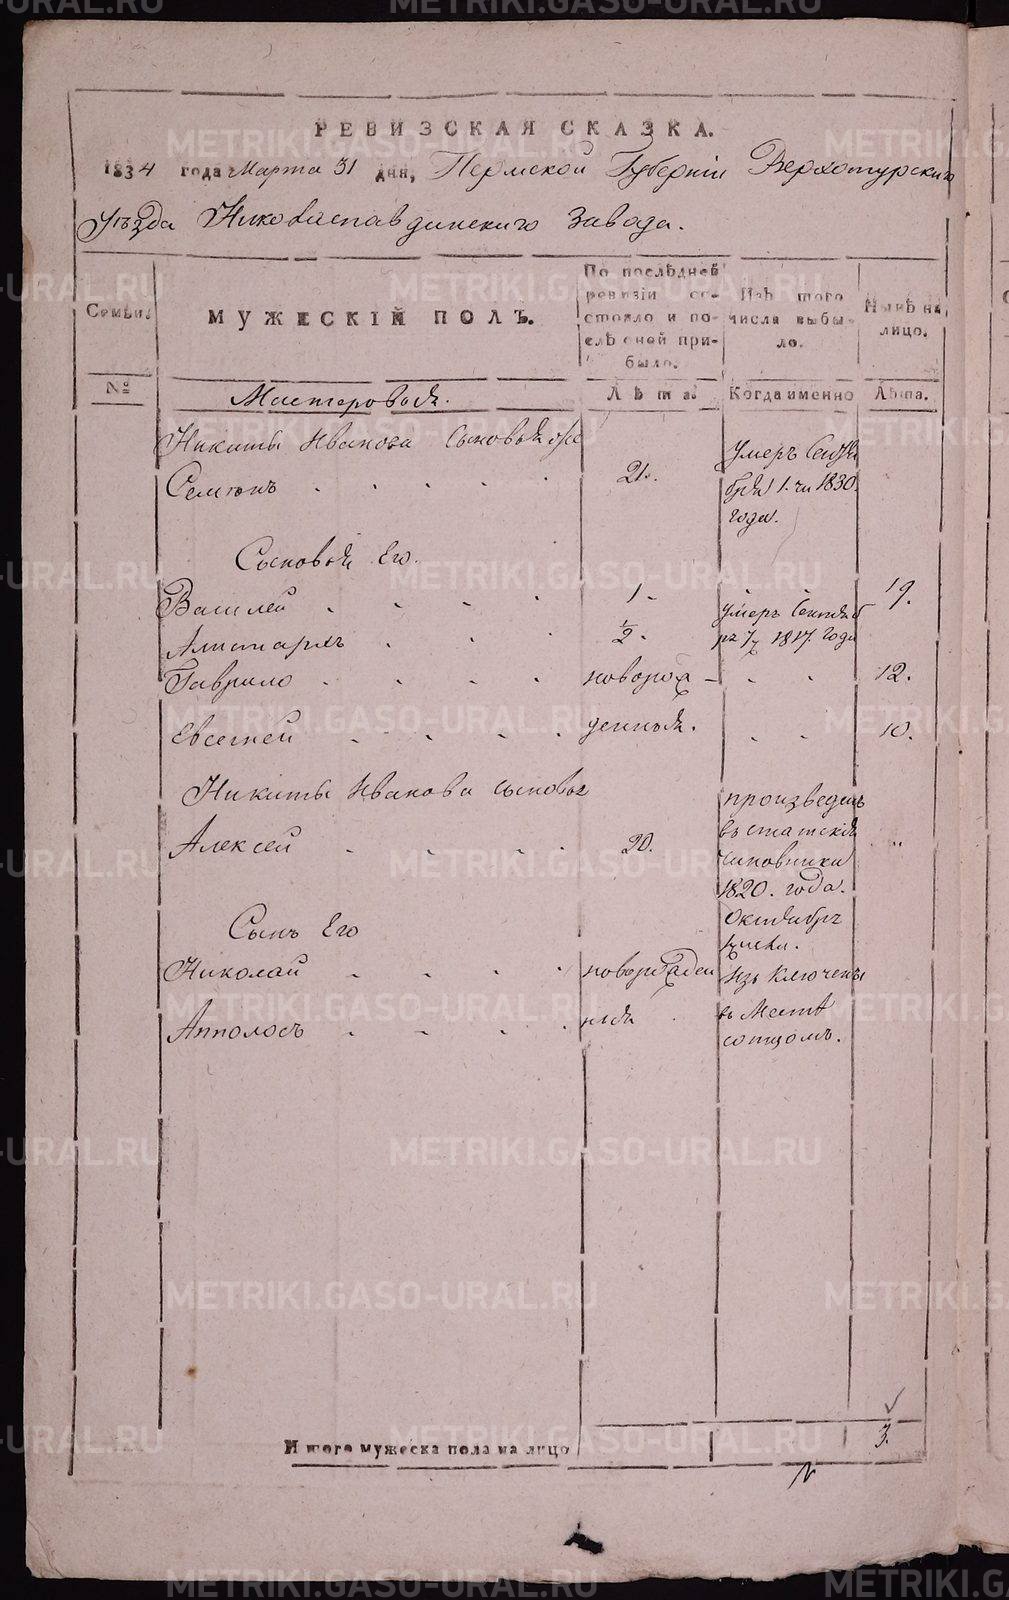 РЕВИЗСКАЯ СКАЗКА.
1834 года Марта 31 дня, Пермской Губерніи Верхотурскаго
Уѣзда Николаепавдинскаго Завода.
Семьи.
МУЖЕСКІЙ ПОЛЪ.
По послѣдней ревизіи состояло и послѣ оной прибыло.
Изъ того числа выбыло.
Нынѣ на лицо.
№
Мастеровыя.
Лѣта.
Когда именно
Лѣта.
Никиты Иванова сыновья
Семионъ 21. умеръ
1. ч. 1830.
года.
Сыновья Его.
Василей 1. 19.
Алистархъ ½. умеръ Сентяб
ря 1817. года
Гаврило новорож 12.
Евсегней денныя. 10.
Никиты Иванова сыновья
Алексей 20. произведенъ
въ статскія
чиновники
1820. года.
Октября
Сынъ Его
числа.
Николай новорожден изъ Ключены
Апполосъ ныя въ Месте
сотцомъ.
Итого мужеска пола на лицо 3.
METRIKI.GASO-URAL.RU